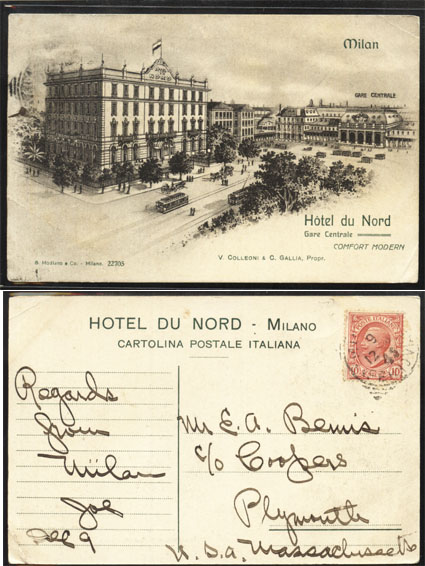 Milan
GARE CENTRALE
Hôtel du Nord
Gare Centrale
COMFORT MODERN
S. Modiano & Co. - Milano. 22705
V. COLLEONI & C. GALLIA, Propr.
HOTEL DU NORD - MILANO
CARTOLINA POSTALE ITALIANA
Regards
from
Milan
Joe
Mr E. A. Bemis
c/o Coopers
Plymouth
U.S.A. Massachusetts